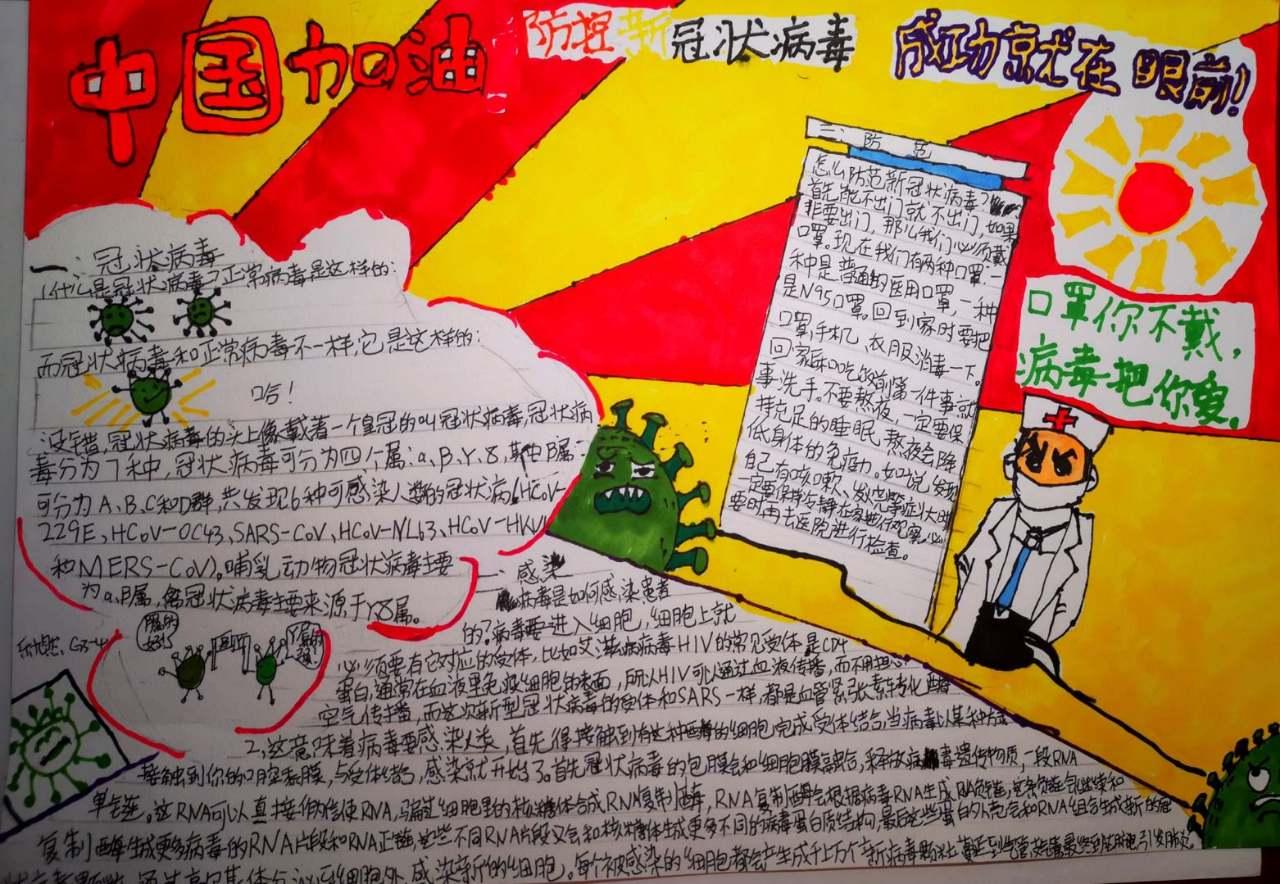 中国加油
防控新冠状病毒
成功就在眼前!
一:冠状病毒
1什么是冠状病毒?正常病毒是这样的:
而冠状病毒和正常病毒不一样,它是这样的:
哈!
没错,冠状病毒的头上像戴着一个皇冠的叫冠状病毒,冠状病
毒分为7种,冠状病毒可分为四个属:α、β、γ、δ,其中β属
可分为A、B、C和D群,共发现6种可感染人类的冠状病(HCoV-
229E、HCoV-OC43、SARS-CoV、HCoV-NL63、HCoV-HKU1
和MERS-CoV)。哺乳动物冠状病毒主要
为α、β属,禽冠状病毒主要来源于γδ属。
二、防范
怎么防范新冠状病毒?
首先能不出门就不出门,如果
非要出门,那么我们必须戴
口罩,现在我们有两种口罩:一
种是普通的医用口罩,一种
是N95口罩。回到家时要把
口罩,手机,衣服消毒一下。
回家和吃饭前第一件事就
事洗手。不要熬夜,一定要保
持充足的睡眠,熬夜会降
低身体的免疫力。如说,发现
自己有咳嗽、发烧等症状时
一定要保持冷静在家进行观察,必
要时再去医院进行检查。
口罩你不戴,
病毒把你爱。
感染
病毒是如何感染患者
的?病毒要进入细胞,细胞上就
必须要有它对应的受体,比如艾滋病病毒HIV的常见受体是CD4
蛋白,通常在血液里免疫细胞的表面,所以HIV可以通过血液传播,而不用担心
空气传播,而这次新型冠状病毒的受体和SARS一样,都是血管紧张素转化酶
2,这意味着病毒要感染人类,首先得接触到有这种的细胞完成受体结合,当病毒以某种方式
接触到你的口腔黏膜,与受体结合,感染就开始了。首先冠状病毒的包膜会和细胞膜融合,释放病毒遗传物质,一段RNA
单链。这RNA可以直接作信使RNA,骗过细胞里的核糖体合成RNA复制酶,RNA复制酶会根据病毒RNA生成RNA负链,这条负链会继续和
复制酶生成更多病毒的RNA片段和RNA正链,这些不同RNA片段又会和核糖体生成更多不同的病毒蛋白质结构,最后这些蛋白外壳会和RNA组合生成新的冠
感染新的细胞。每个被感染的细胞都会产生成千上万个新病毒颗粒